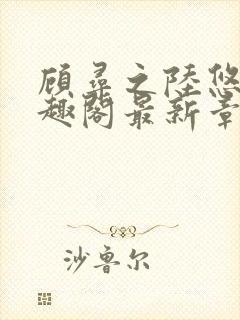 顾寻之陸悠
趣阁最新章
沙鲁尔